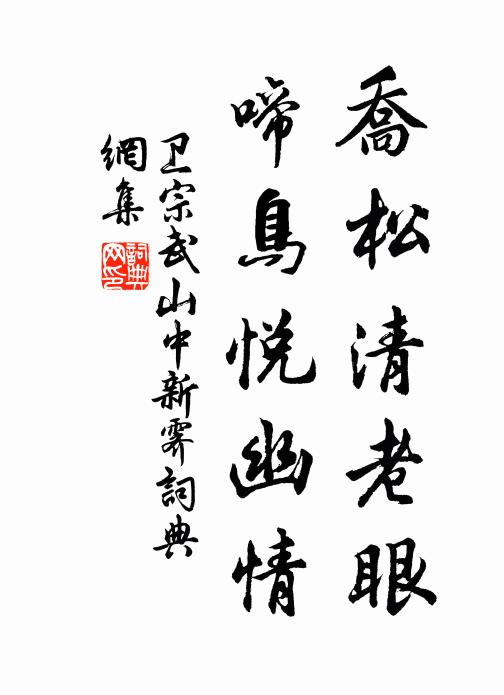 喬松清老眼
啼鳥悦幽情
卫宗武山中新霽詞典
網集
詞典网印